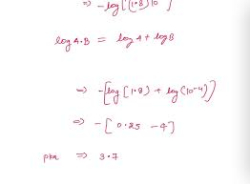 ⇒ -log [(1.8)10
log A.B = log A + log B
⇒ -[log [1.8) + log (10⁻⁴)]
⇒ -[0.25 -4]
⇒ 3.7